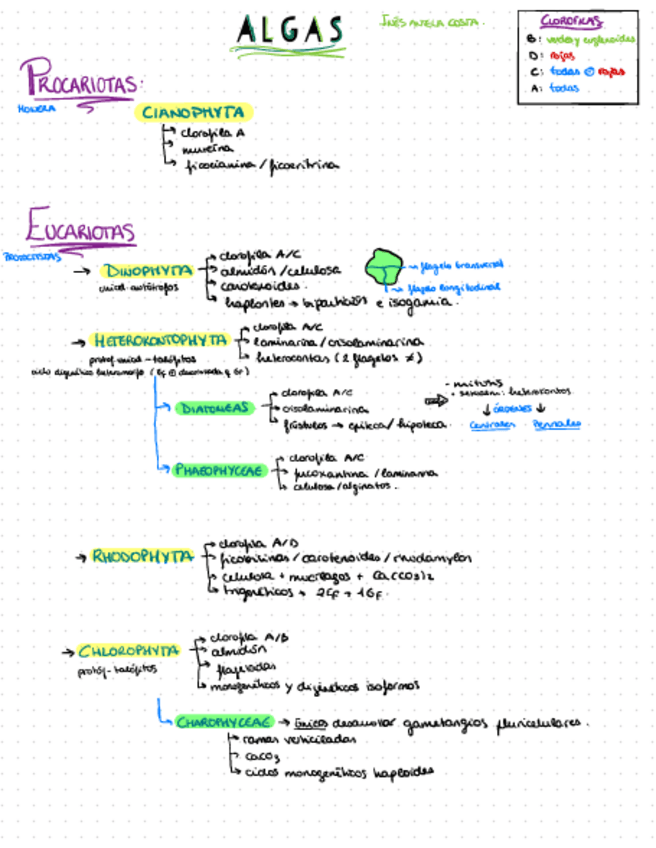 ALGAS
INÉS ANTELA COSTA.
CLOROFILAS
B: verdes y euglenoides
D: rojas
C: todas ⊖ rojas
A: todas
PROCARIOTAS:
MONERA
CIANOPHYTA
clorofila A
mureína
ficocianina / ficoeritrina
EUCARIOTAS
PROTOCTISTAS
→ DINOPHYTA
unicel-autótrofos
clorofila A/C
almidón / celulosa
carotenoides.
haplontes → bipartición e isogamia.
flagelo transversal
flagelo longitudinal
→ HETEROKONTOPHYTA
protof. unicel - talófitos
ciclo digenético heteromorfo
clorofila A/C
laminarina / crisolaminarina
heterocontas (2 flagelos ≠)
DIATOMEAS
clorofila A/C
crisolaminarina
frústulos → epiteca / hipoteca.
- mitosis
heterocontos
↓ ÓRDENES ↓
Centrales Pennales
PHAEOPHYCEAE
clorofila A/C
fucoxantina / laminarina
celulosa / alginatos.
→ RHODOPHYTA
clorofila A/D
ficoeritrinas / carotenoides / rhodamylon
celulosa + mucílagos + Ca(CO3)2
trigenéticos → 2Ef + 1Gf.
→ CHLOROPHYTA
protóf - talófitos
clorofila A/B
almidón
flageladas
monogenéticos y digenéticos isoformos
CHAROPHYCEAE → únicos desarrollar gametangios pluricelulares.
ramas verticiladas
CaCO3
ciclos monogenéticos haploides